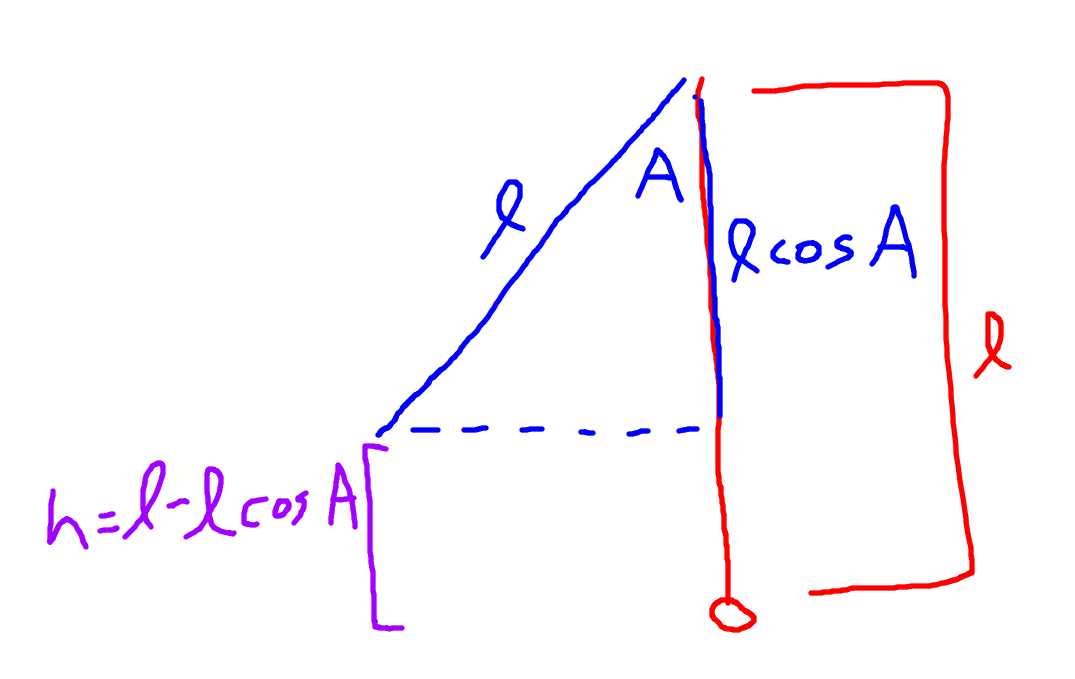 l
A
l cos A
l
h = l - l cos A